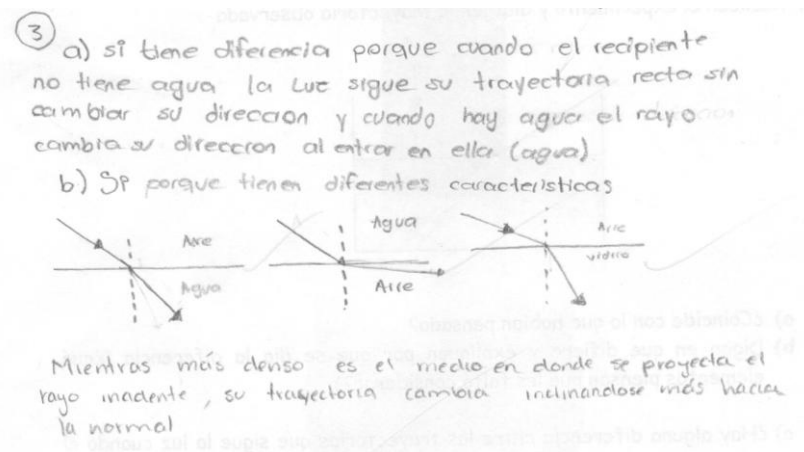 3
a) si tiene diferencia porque cuando el recipiente
no tiene agua la luz sigue su trayectoria recta sin
cambiar su direccion y cuando hay agua el rayo
cambia su direccion al entrar en ella (agua)
b) SP porque tienen diferentes caracteristicas
Aire
Agua
Agua
Aire
Aire
vidrio
Mientras más denso es el medio en donde se proyecta el
rayo incidente, su trayectoria cambia inclinandose más hacia
la normal